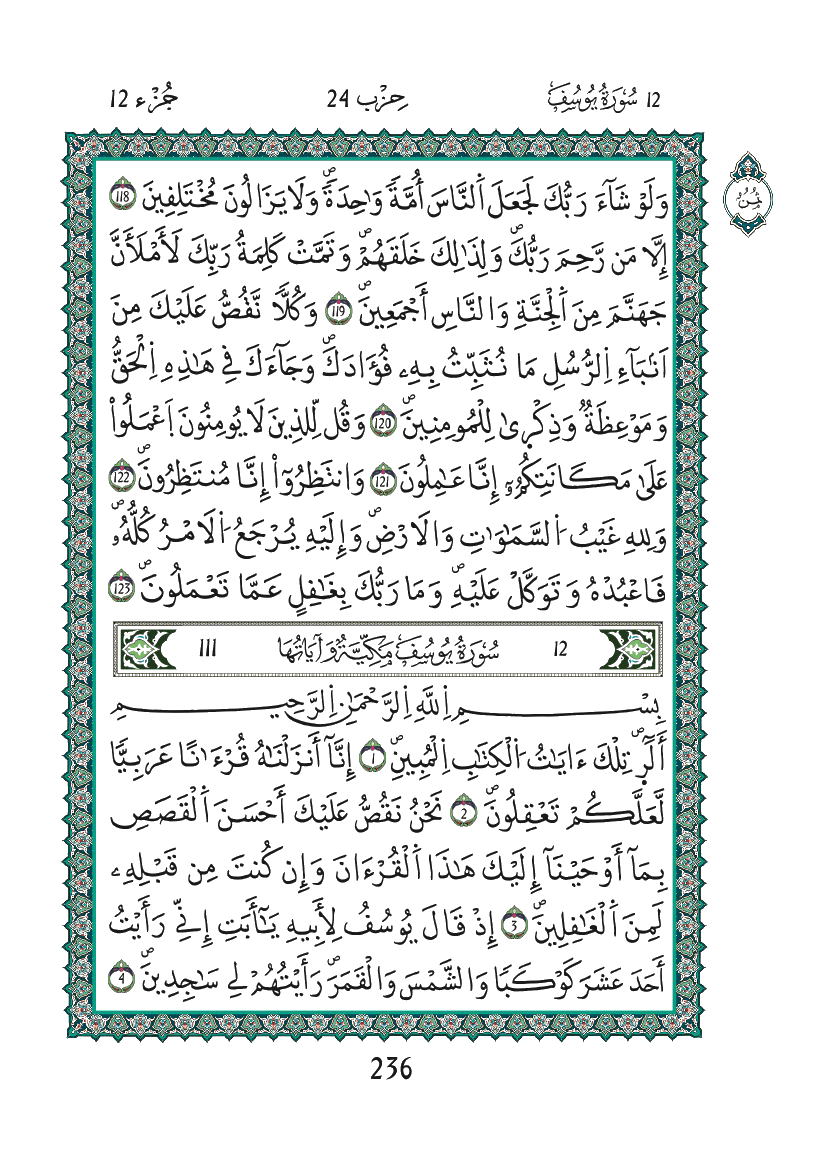 12 سُورَةُ يُوسُفَ حِزْب 24 جُزْء 12
ثمن
وَلَوْ شَآءَ رَبُّكَ لَجَعَلَ اَ۬لنَّاسَ أُمَّةٗ وَٰحِدَةٗۖ وَلَا يَزَالُونَ مُخْتَلِفِينَ 118
إِلَّا مَن رَّحِمَ رَبُّكَۖ وَلِذَٰلِكَ خَلَقَهُمْۖ وَتَمَّتْ كَلِمَةُ رَبِّكَ لَأَمْلَأَنَّ
جَهَنَّمَ مِنَ اَ۬لْجِنَّةِ وَالنَّاسِ أَجْمَعِينَۖ 119 وَكُلّٗا نَّقُصُّ عَلَيْكَ مِنَ
اَنۢبَآءِ اِ۬لرُّسُلِ مَا نُثَبِّتُ بِهِۦ فُؤَادَكَۖ وَجَآءَكَ فِے هَٰذِهِ اِ۬لْحَقُّ
وَمَوْعِظَةٞ وَذِكْرَىٰ لِلْمُومِنِينَۖ 120 وَقُل لِّلذِينَ لَا يُومِنُونَ اَ۪عْمَلُواْ
عَلَىٰ مَكَانَتِكُمُۥٓ إِنَّا عَٰمِلُونَ 121 وَانتَظِرُوٓاْ إِنَّا مُنتَظِرُونَۖ 122
وَلِلهِ غَيْبُ اُ۬لسَّمَٰوَٰتِ وَالَارْضِۖ وَإِلَيْهِ يُرْجَعُ اُ۬لَامْرُ كُلُّهُۥۖ
فَاعْبُدْهُ وَتَوَكَّلْ عَلَيْهِۖ وَمَا رَبُّكَ بِغَٰفِلٍ عَمَّا تَعْمَلُونَۖ 123
12 سُورَةُ يُوسُفَ مَكِّيَّةٌ وَآيَاتُهَا 111
بِسْمِ اِ۬للَّهِ اِ۬لرَّحْمَٰنِ اِ۬لرَّحِيمِ
أَلَٓرۖ تِلْكَ ءَايَٰتُ اُ۬لْكِتَٰبِ اِ۬لْمُبِينِۖ 1 إِنَّآ أَنزَلْنَٰهُ قُرْءَٰناً عَرَبِيّٗا
لَّعَلَّكُمْ تَعْقِلُونَۖ 2 نَحْنُ نَقُصُّ عَلَيْكَ أَحْسَنَ اَ۬لْقَصَصِ
بِمَآ أَوْحَيْنَآ إِلَيْكَ هَٰذَا اَ۬لْقُرْءَانَ وَإِن كُنتَ مِن قَبْلِهِۦ
لَمِنَ اَ۬لْغَٰفِلِينَۖ 3 إِذْ قَالَ يُوسُفُ لِأَبِيهِ يَٰٓأَبَتِ إِنِّے رَأَيْتُ
أَحَدَ عَشَرَ كَوْكَباٗ وَالشَّمْسَ وَالْقَمَرَۖ رَأَيْتُهُمْ لِے سَٰجِدِينَۖ 4
236